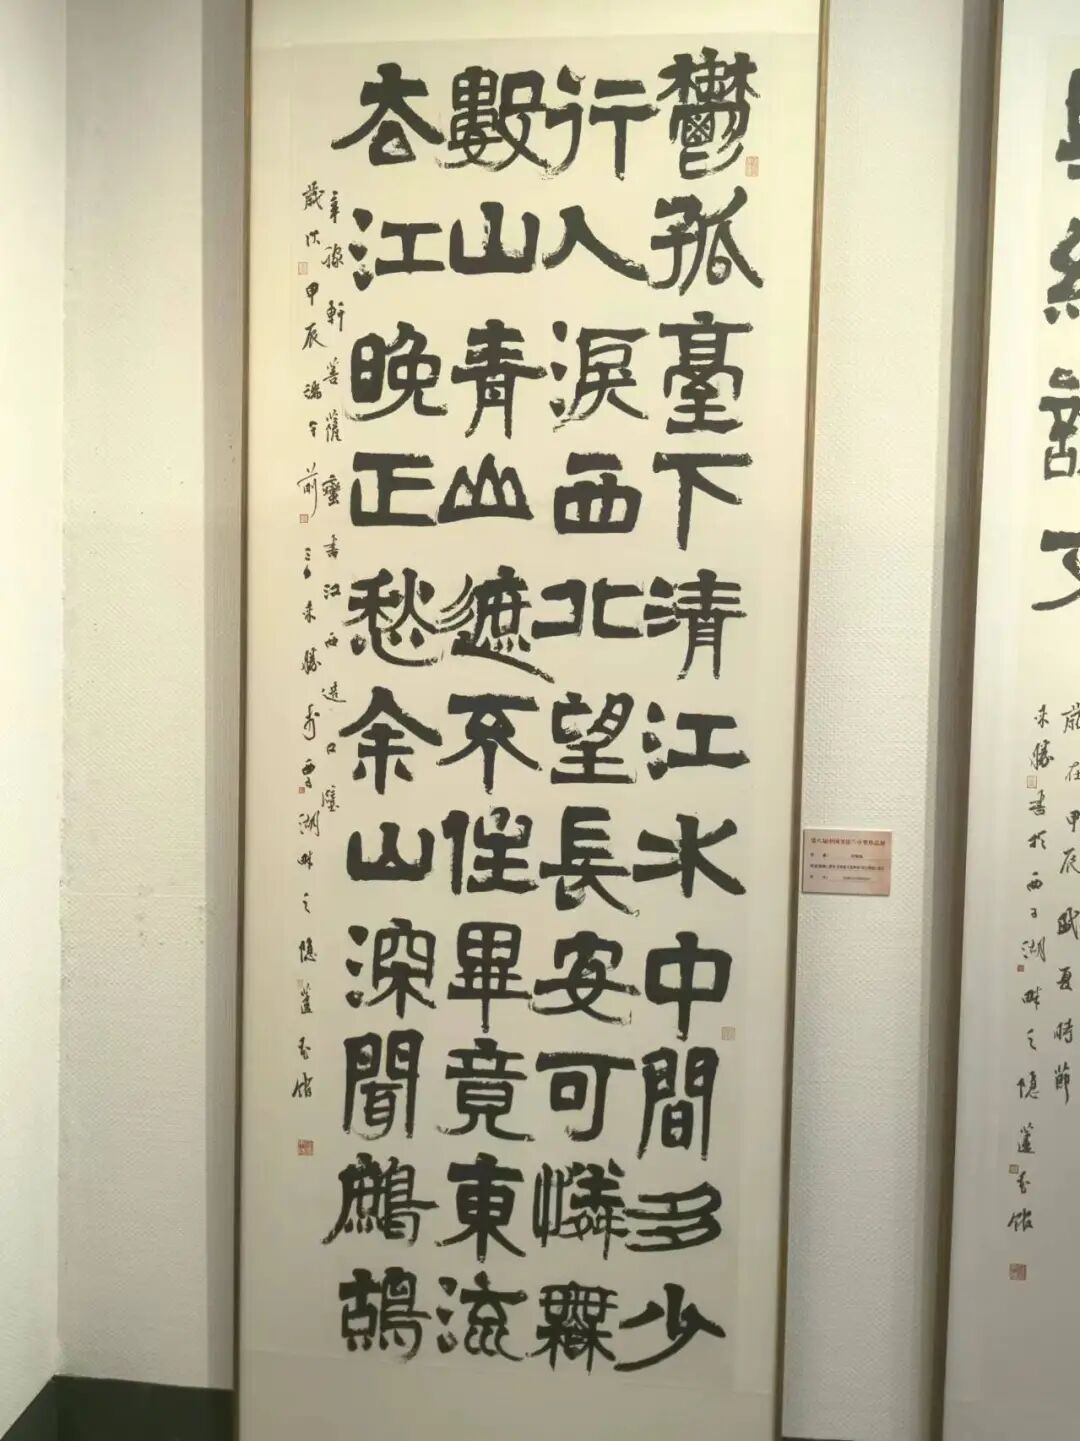 鬱孤臺下清江水中間多少
行人淚西北望長安可憐無
數山青山遮不住畢竟東流
去江晚正愁余山深聞鷓鴣
辛稼軒菩薩蠻書江西造口壁
歲次甲辰端午前三日朱勝 西子湖畔之隱 館
歲在甲辰 夏時節
朱勝書於西子湖畔之隱 館